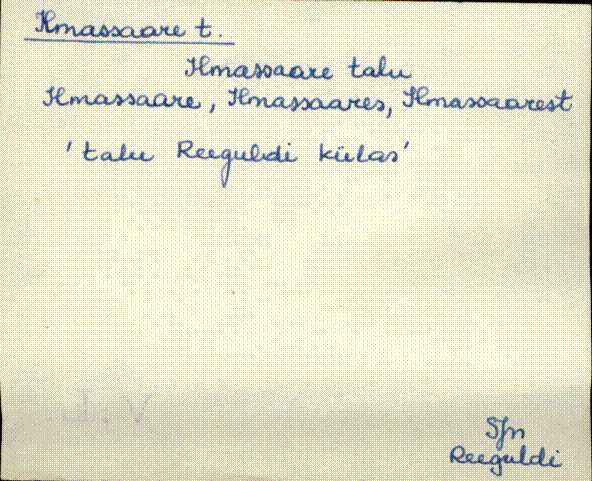 Ilmassaare t.
Ilmassaare talu
Ilmassaare, Ilmassaares, Ilmassaarest
'talu Reeguldi külas'
SJn
Reeguldi